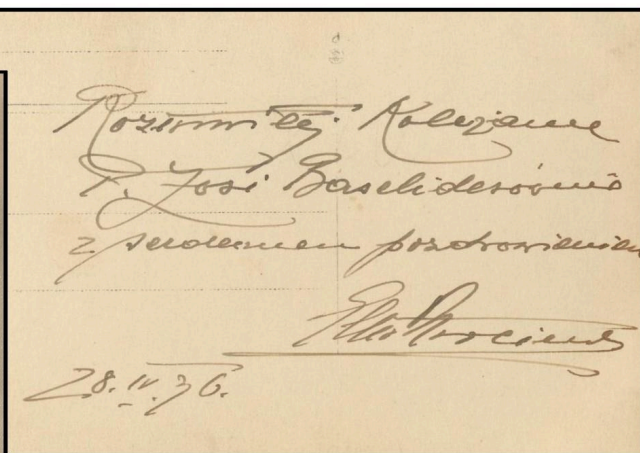 Rozśmiłej Koleżance
P. Zosi Baschiderównie
z serdecznem pozdrowieniem
28.IV.36.